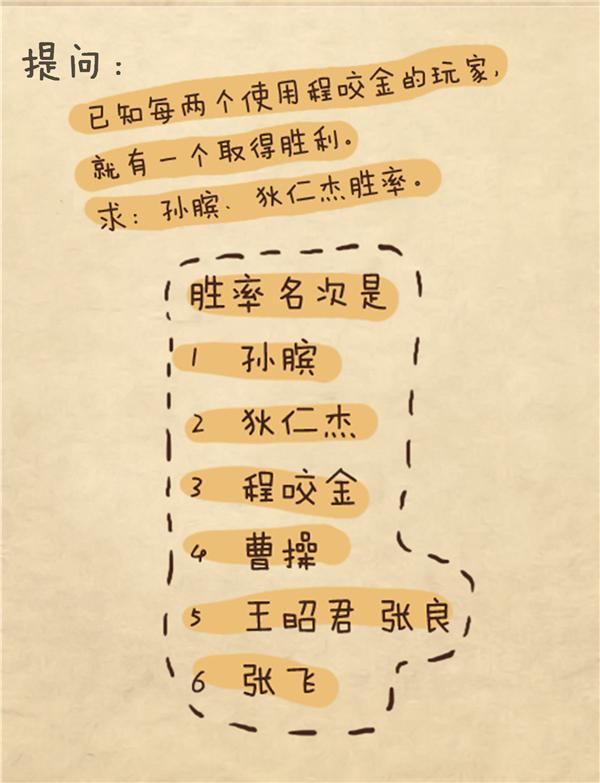 提问：
已知每两个使用程咬金的玩家,
就有一个取得胜利。
求：孙膑、狄仁杰胜率。
胜率名次是
1 孙膑
2 狄仁杰
3 程咬金
4 曹操
5 王昭君 张良
6 张飞